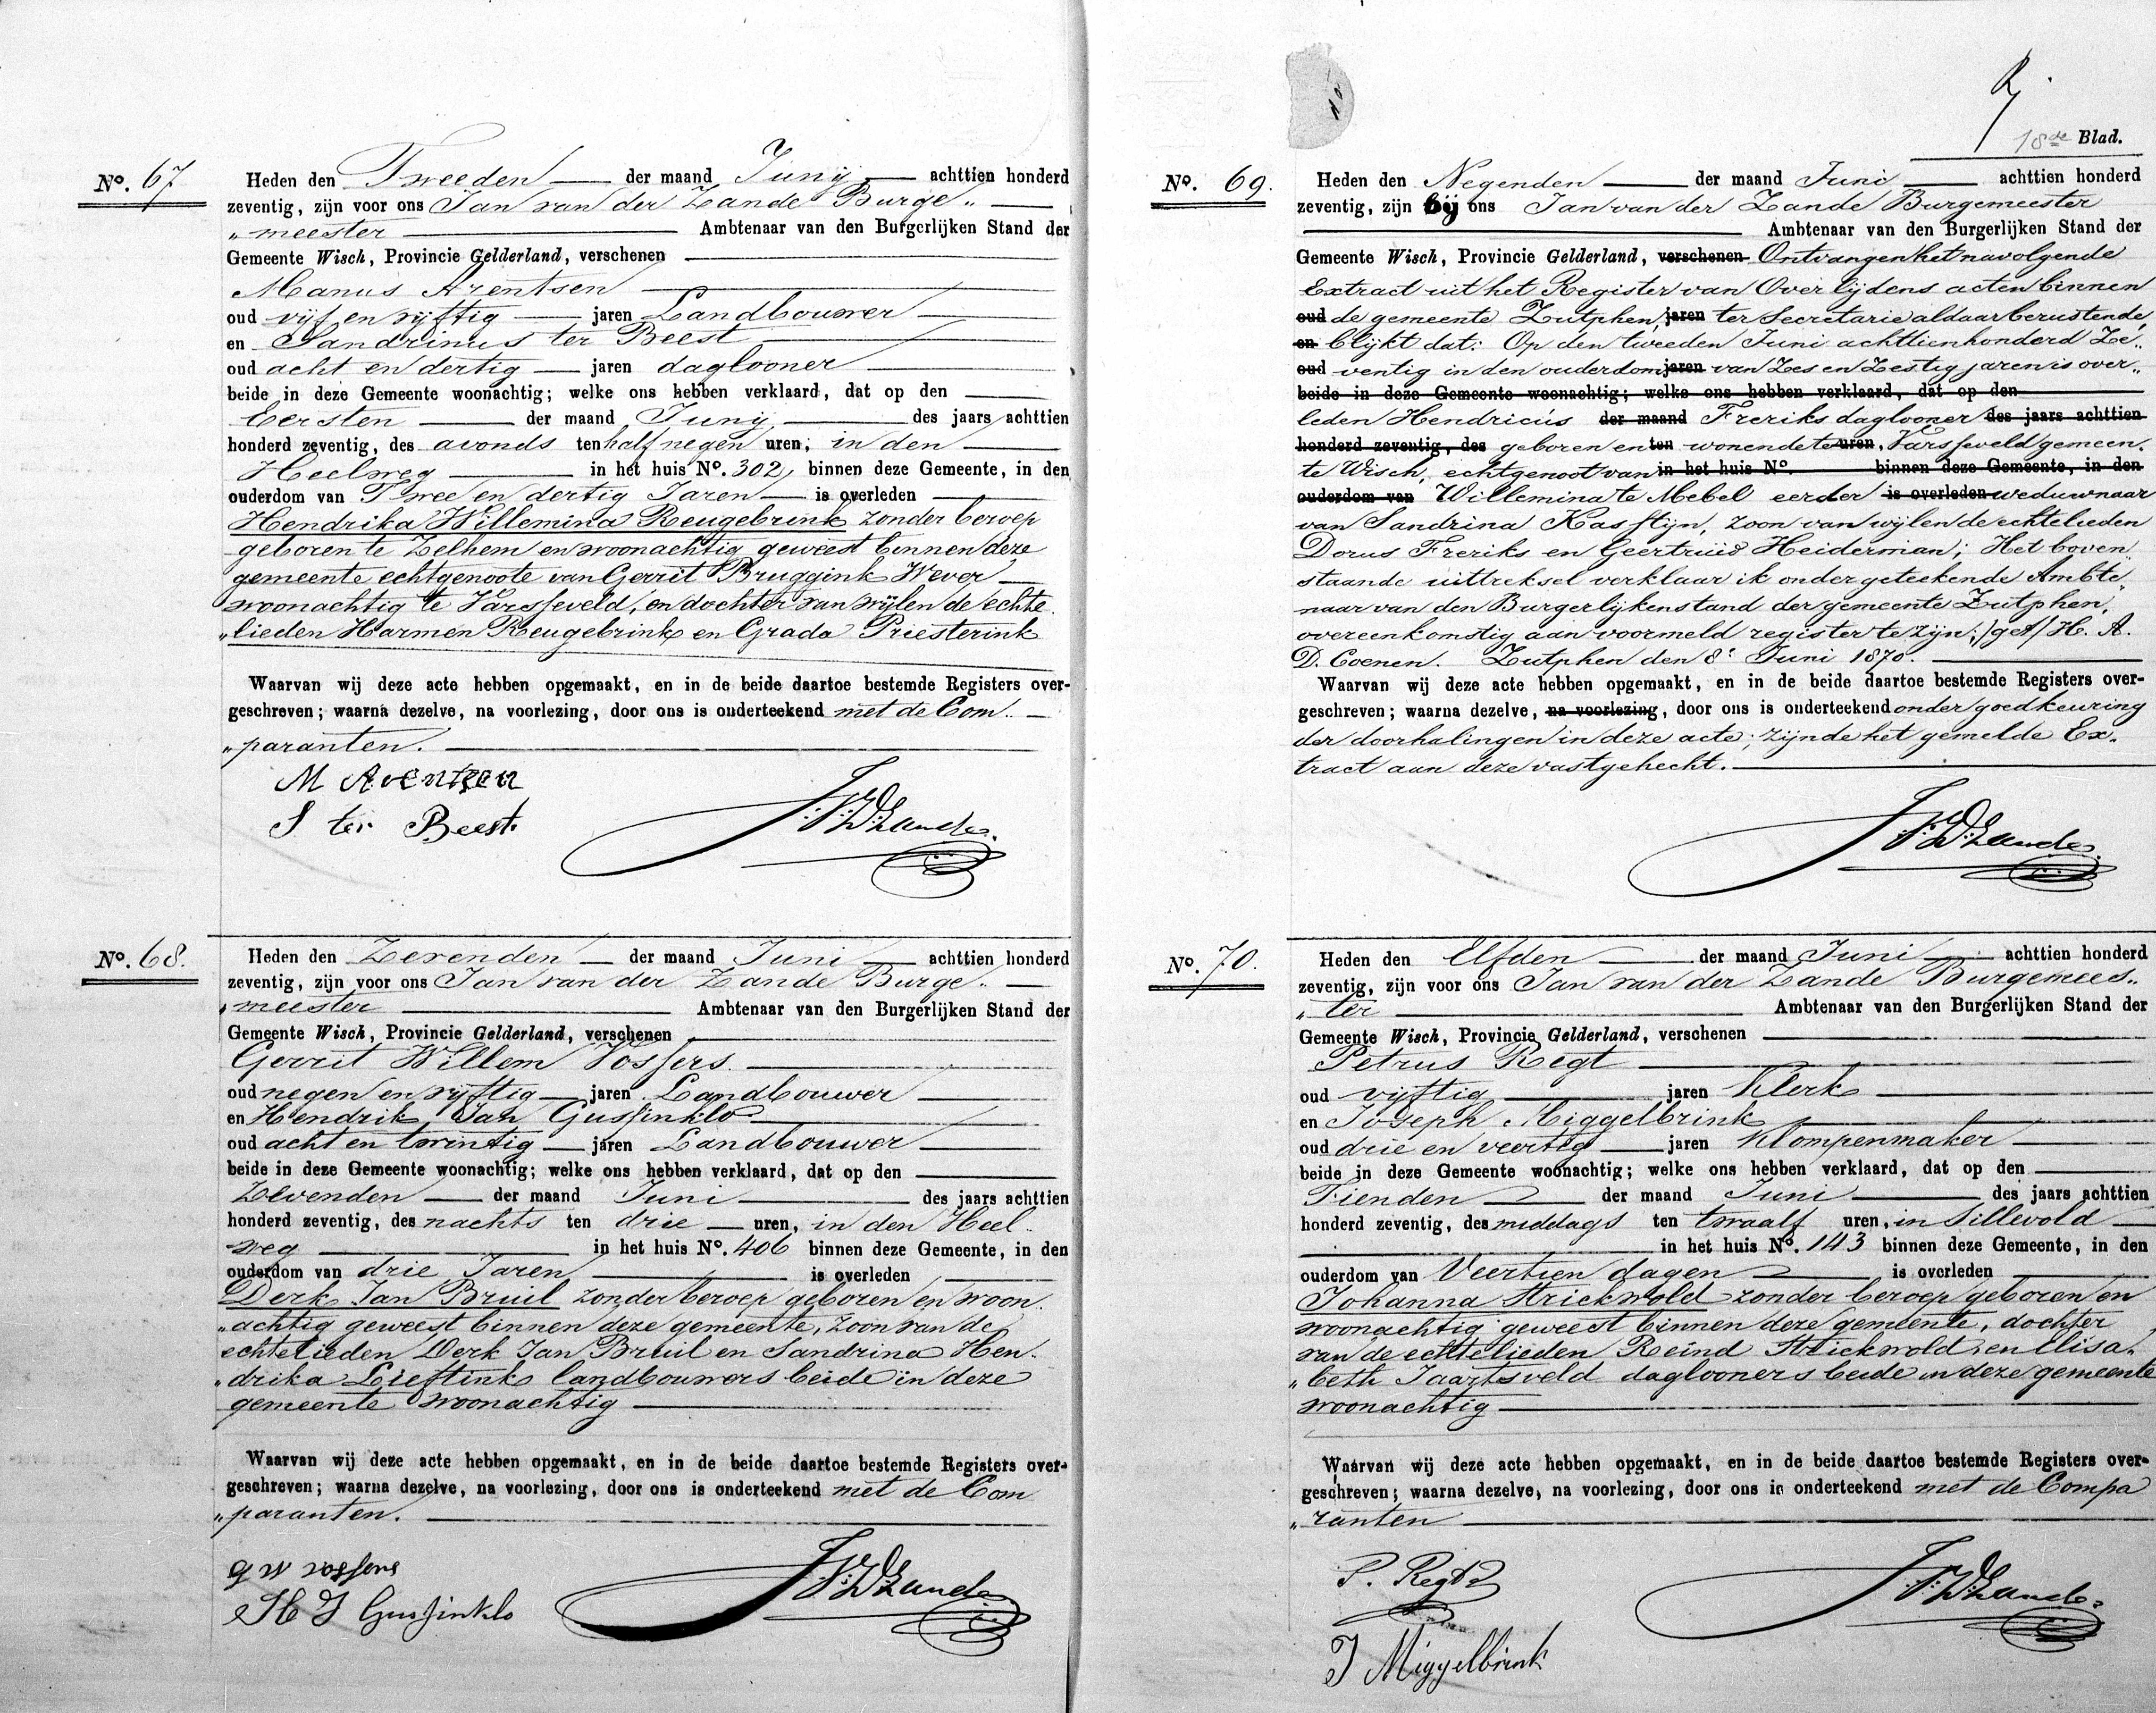 No. 67
Heden den Tweeden der maand Juny achttien honderd
zeventig, zijn voor ons Jan van der Zande Burge„
„meester Ambtenaar van den Burgerlijken Stand der
Gemeente Wisch, Provincie Gelderland, verschenen
Manus Arentsen
oud vijf en vijftig jaren Landbouwer
en Sandrinus ter Beest
oud acht en dertig jaren daglooner
beide in deze Gemeente woonachtig; welke ons hebben verklaard, dat op den
Eersten der maand Juny des jaars achttien
honderd zeventig, des avonds ten half negen uren, in den
Heelweg in het huis No. 302, binnen deze Gemeente, in den
ouderdom van Twee en dertig Jaren is overleden
Hendrika Willemina Reugebrink zonder beroep
geboren te Zelhem en woonachtig geweest binnen deze
gemeente echtgenoote van Gerrit Bruggink Wever
woonachtig te Varsseveld, en dochter van wijlen de echte
„lieden Harmen Reugebrink en Grada Priesterink
Waarvan wij deze acte hebben opgemaakt, en in de beide daartoe bestemde Registers over-
geschreven; waarna dezelve, na voorlezing, door ons is onderteekend met de Com„
„paranten.
M Arentsen
S ter Beest
J.V.D.Zande
No. 68.
Heden den Zevenden der maand Juni achttien honderd
zeventig, zijn voor ons Jan van der Zande Burge„
„meester Ambtenaar van den Burgerlijken Stand der
Gemeente Wisch, Provincie Gelderland, verschenen
Gerrit Willem Vossers
oud negen en vijftig jaren Landbouwer
en Hendrik Jan Gussinklo
oud acht en twintig jaren Landbouwer
beide in deze Gemeente woonachtig; welke ons hebben verklaard, dat op den
Zevenden der maand Juni des jaars achttien
honderd zeventig, des nachts ten drie uren, in den Heel„
weg in het huis No. 406 binnen deze Gemeente, in den
ouderdom van drie Jaren is overleden
Derk Jan Bruil zonder beroep geboren en woon„
„achtig geweest binnen deze gemeente, zoon van de
echtelieden Derk Jan Bruil en Sandrina Hen„
„drika Lieftink landbouwers beide in deze
gemeente woonachtig
Waarvan wij deze acte hebben opgemaakt, en in de beide daartoe bestemde Registers over-
geschreven; waarna dezelve, na voorlezing, door ons is onderteekend met de Com
„paranten.
g w vossers
H J Gussinklo
J.V.D.Zande
18de Blad.
No. 69.
Heden den Negenden der maand Juni achttien honderd
zeventig, zijn bij ons Jan van der Zande Burgemeester
Ambtenaar van den Burgerlijken Stand der
Gemeente Wisch, Provincie Gelderland, verschenen Ontvangen het navolgende
Extract uit het Register van Overlijdens acten binnen
oud de gemeente Zutphen, jaren ter Secretarie aldaar berustende,
en blijkt dat: Op den tweeden Juni achttienhonderd Ze„
oud ventig in den ouderdom jaren van Zes en Zestig jaren is over„
beide in deze Gemeente woonachtig; welke ons hebben verklaard, dat op den
leden Hendricus der maand Freriks daglooner des jaars achttien
honderd zeventig, des geboren en ten wonende te uren, Varsseveld gemeen„
te Wisch, echtgenoot van in het huis No. binnen deze Gemeente, in den
ouderdom van Willemina te Mebel eerder is overleden weduwnaar
van Sandrina Kasstijn, zoon van wijlen de echtelieden
Dorus Freriks en Geertruid Heiderman; Het boven„
staande uittreksel verklaar ik ondergeteekende Ambte„
naar van den Burgerlijkenstand der gemeente Zutphen,
overeenkomstig aan voormeld register te zijn; /get/ H. A.
D. Coenen. Zutphen den 8e Juni 1870.
Waarvan wij deze acte hebben opgemaakt, en in de beide daartoe bestemde Registers over-
geschreven; waarna dezelve, na voorlezing, door ons is onderteekend onder goedkeuring
der doorhalingen in deze acte; zijnde het gemelde Ex„
tract aan deze vastgehecht.
J.V.D.Zande
No. 70.
Heden den Elfden der maand Juni achttien honderd
zeventig, zijn voor ons Jan van der Zande Burgemees„
„ter Ambtenaar van den Burgerlijken Stand der
Gemeente Wisch, Provincie Gelderland, verschenen
Petrus Regt
oud vijftig jaren Klerk
en Joseph Miggelbrink
oud drie en veertig jaren Klompenmaker
beide in deze Gemeente woonachtig; welke ons hebben verklaard, dat op den
Tienden der maand Juni des jaars achttien
honderd zeventig, des middags ten twaalf uren, in Sillevold
in het huis No. 143 binnen deze Gemeente, in den
ouderdom van Veertien dagen is overleden
Johanna Strickwold zonder beroep geboren en
woonachtig geweest binnen deze gemeente, dochter
van de echtelieden Reind Strickwold en Elisa„
„beth Jaartsveld daglooners beide in deze gemeente
woonachtig
Waarvan wij deze acte hebben opgemaakt, en in de beide daartoe bestemde Registers over-
geschreven; waarna dezelve, na voorlezing, door ons is onderteekend met de Compa
„ranten
P. Regt
J Miggelbrink
J.V.D.Zande